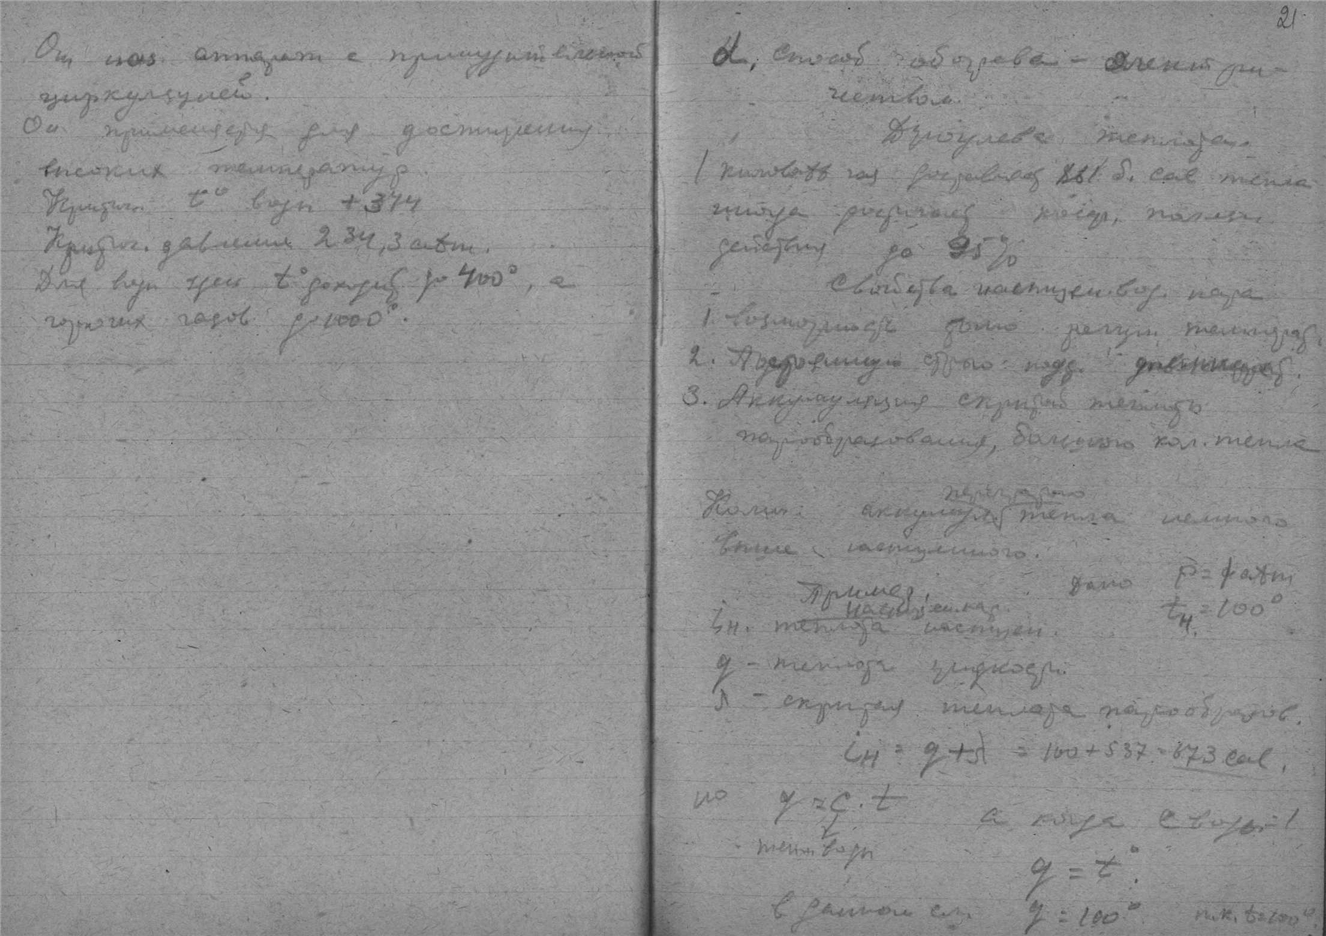 Он наз. аппарат с принудительной
циркуляцией.
Он применяется для достижения
высоких температур
Критич. t° воды +374
Критич. давление 234,3 atm.
Для воды t° доходит до 400°, а
горючих газов до 1000°.
21
d, способ обогрева - электри-
чеством.
Джоулева теплота.
1 киловатт час доставляет 861 б. cal тепла
иногда достигает коэф. полезн.
действия до 95%
Свойства насыщен. вод. пара
1. Возможность точно регул. температ.
2. Постоянную строго подд.
3. Аккумуляция скрытой теплоты
парообразования, большого кол. тепла
перегретого
Колич. аккумулят тепла немного
выше насыщенного.
Пример, Дано p = 1 atm
насыщен. пар. tн. = 100°
iн. теплота насыщен.
q - теплота жидкости.
λ - скрытая теплота парообразов.
iн = q + λ = 100 + 537 = 673 cal.
но q = c. t а когда c воды 1
теп. воды
q = t°.
в данном сл. q = 100° т.к. t=100°